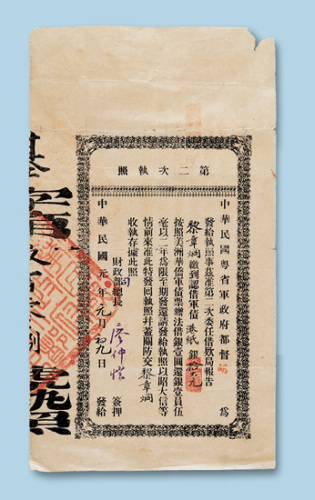 第二次執照
中華民國粵省軍政府都督 為
發給執照事茲准第二次委任借欵局報告
黎章炯繳到認借軍債港紙銀拾大元
按照美洲華僑軍債票辦法借銀壹圓還銀壹員伍
毫以二年為限至期發還請發給執照以昭大信等
情前來准此特發囘執照幷蓋關防交黎章炯
收執存據此照
財政部總長 廖仲愷 簽押
中華民國元年元月初九日 發給